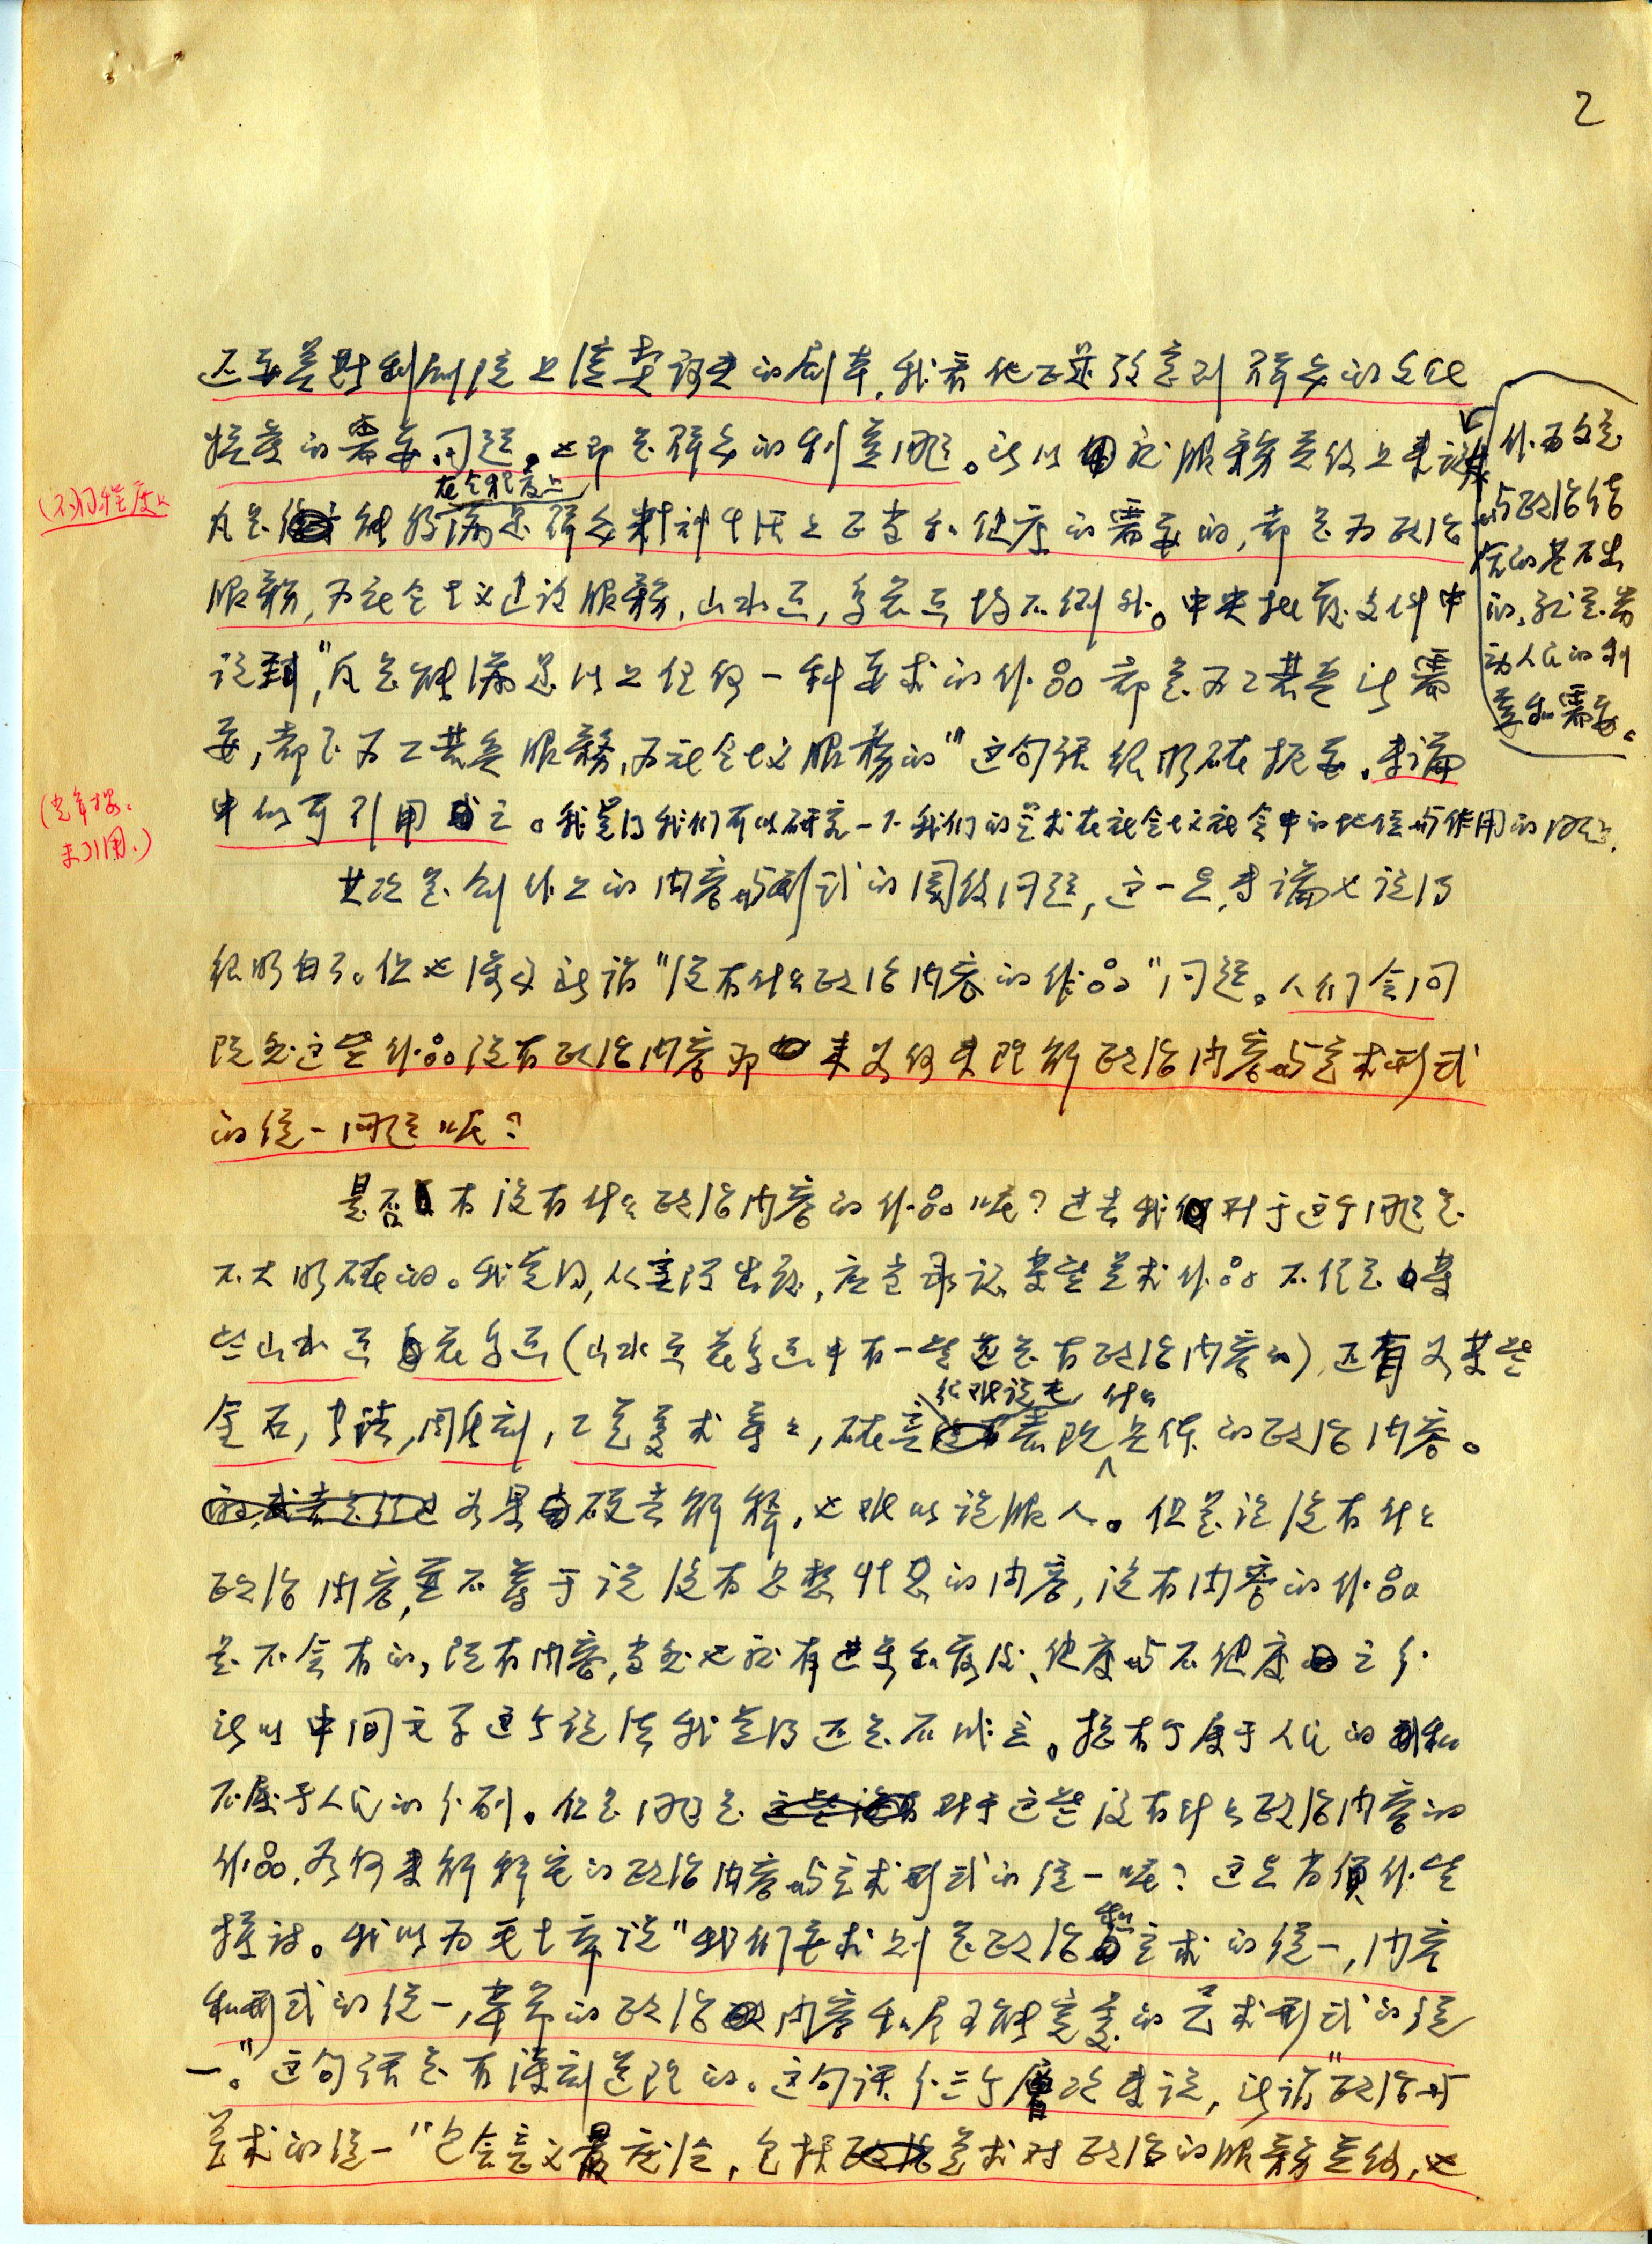 2
还要差斯利剧院上演卖诙的剧本,我看他正是攷虑到群众的文化
程度的需要问题。也即是群众的利益问题。所以就服务意义上来说
作为文艺
与政治结
合的基础
的,就是劳
动人民的利
益和需要。
(不同程度上
在全程度上
凡是能够满足群众精神生活上正当和健康的需要的,都是为政治
服务,为社会主义建设服务,山水画,鸟花画均不例外。中央批发文件中
说到,"凡是能满足以上任何一种要求的作品都是为工农兵所需
要,都是为工农兵服务,为社会主义服务的"这句话很明确扼要,来论
中似可引用之。我觉得我们可以研究一下我们的艺术在社会主义社会中的地位与作用的问题。
(未引用.)
其次是创作上的内容与形式的关系问题,这一点,来论也说得
很明白了。但也谈及所谓"没有什么政治内容的作品"问题。人们会问
既然这些作品没有政治内容那末如何来理解政治内容与艺术形式
的统一问题呢?
是否有没有什么政治内容的作品呢?过去我们对于这个问题是
不大明确的。我觉得,从实际出发,应当承认某些艺术作品不仅是某
些山水画花鸟画(山水画花鸟画中有一些还是有政治内容的),还有如某些
金石,书法,图案刻,工艺美术等等,确实
很难说它 什么
表现具体的政治内容。
如果硬去解释,也难以说服人。但是说没有什么
政治内容,并不等于说没有思想情感的内容,没有内容的作品
是不会有的,既有内容,当然也就有进步和落后、健康与不健康之分
所以中间文字这个说法我觉得还是不成立。总有个属于人民的和
不属于人民的分别。但是问题是对于这些没有什么政治内容的
作品,如何来解释它的政治内容与艺术形式的统一呢?这点尚须作些
探讨。我以为毛主席说"我们要求则是政治和艺术的统一,内容
和形式的统一,革命的政治内容和尽可能完美的艺术形式的统
一。"这句话是有深刻道理的。这句话分三个层次来说,所谓"政治与
艺术的统一"包含意义最广泛,包括艺术对政治的服务意义,也